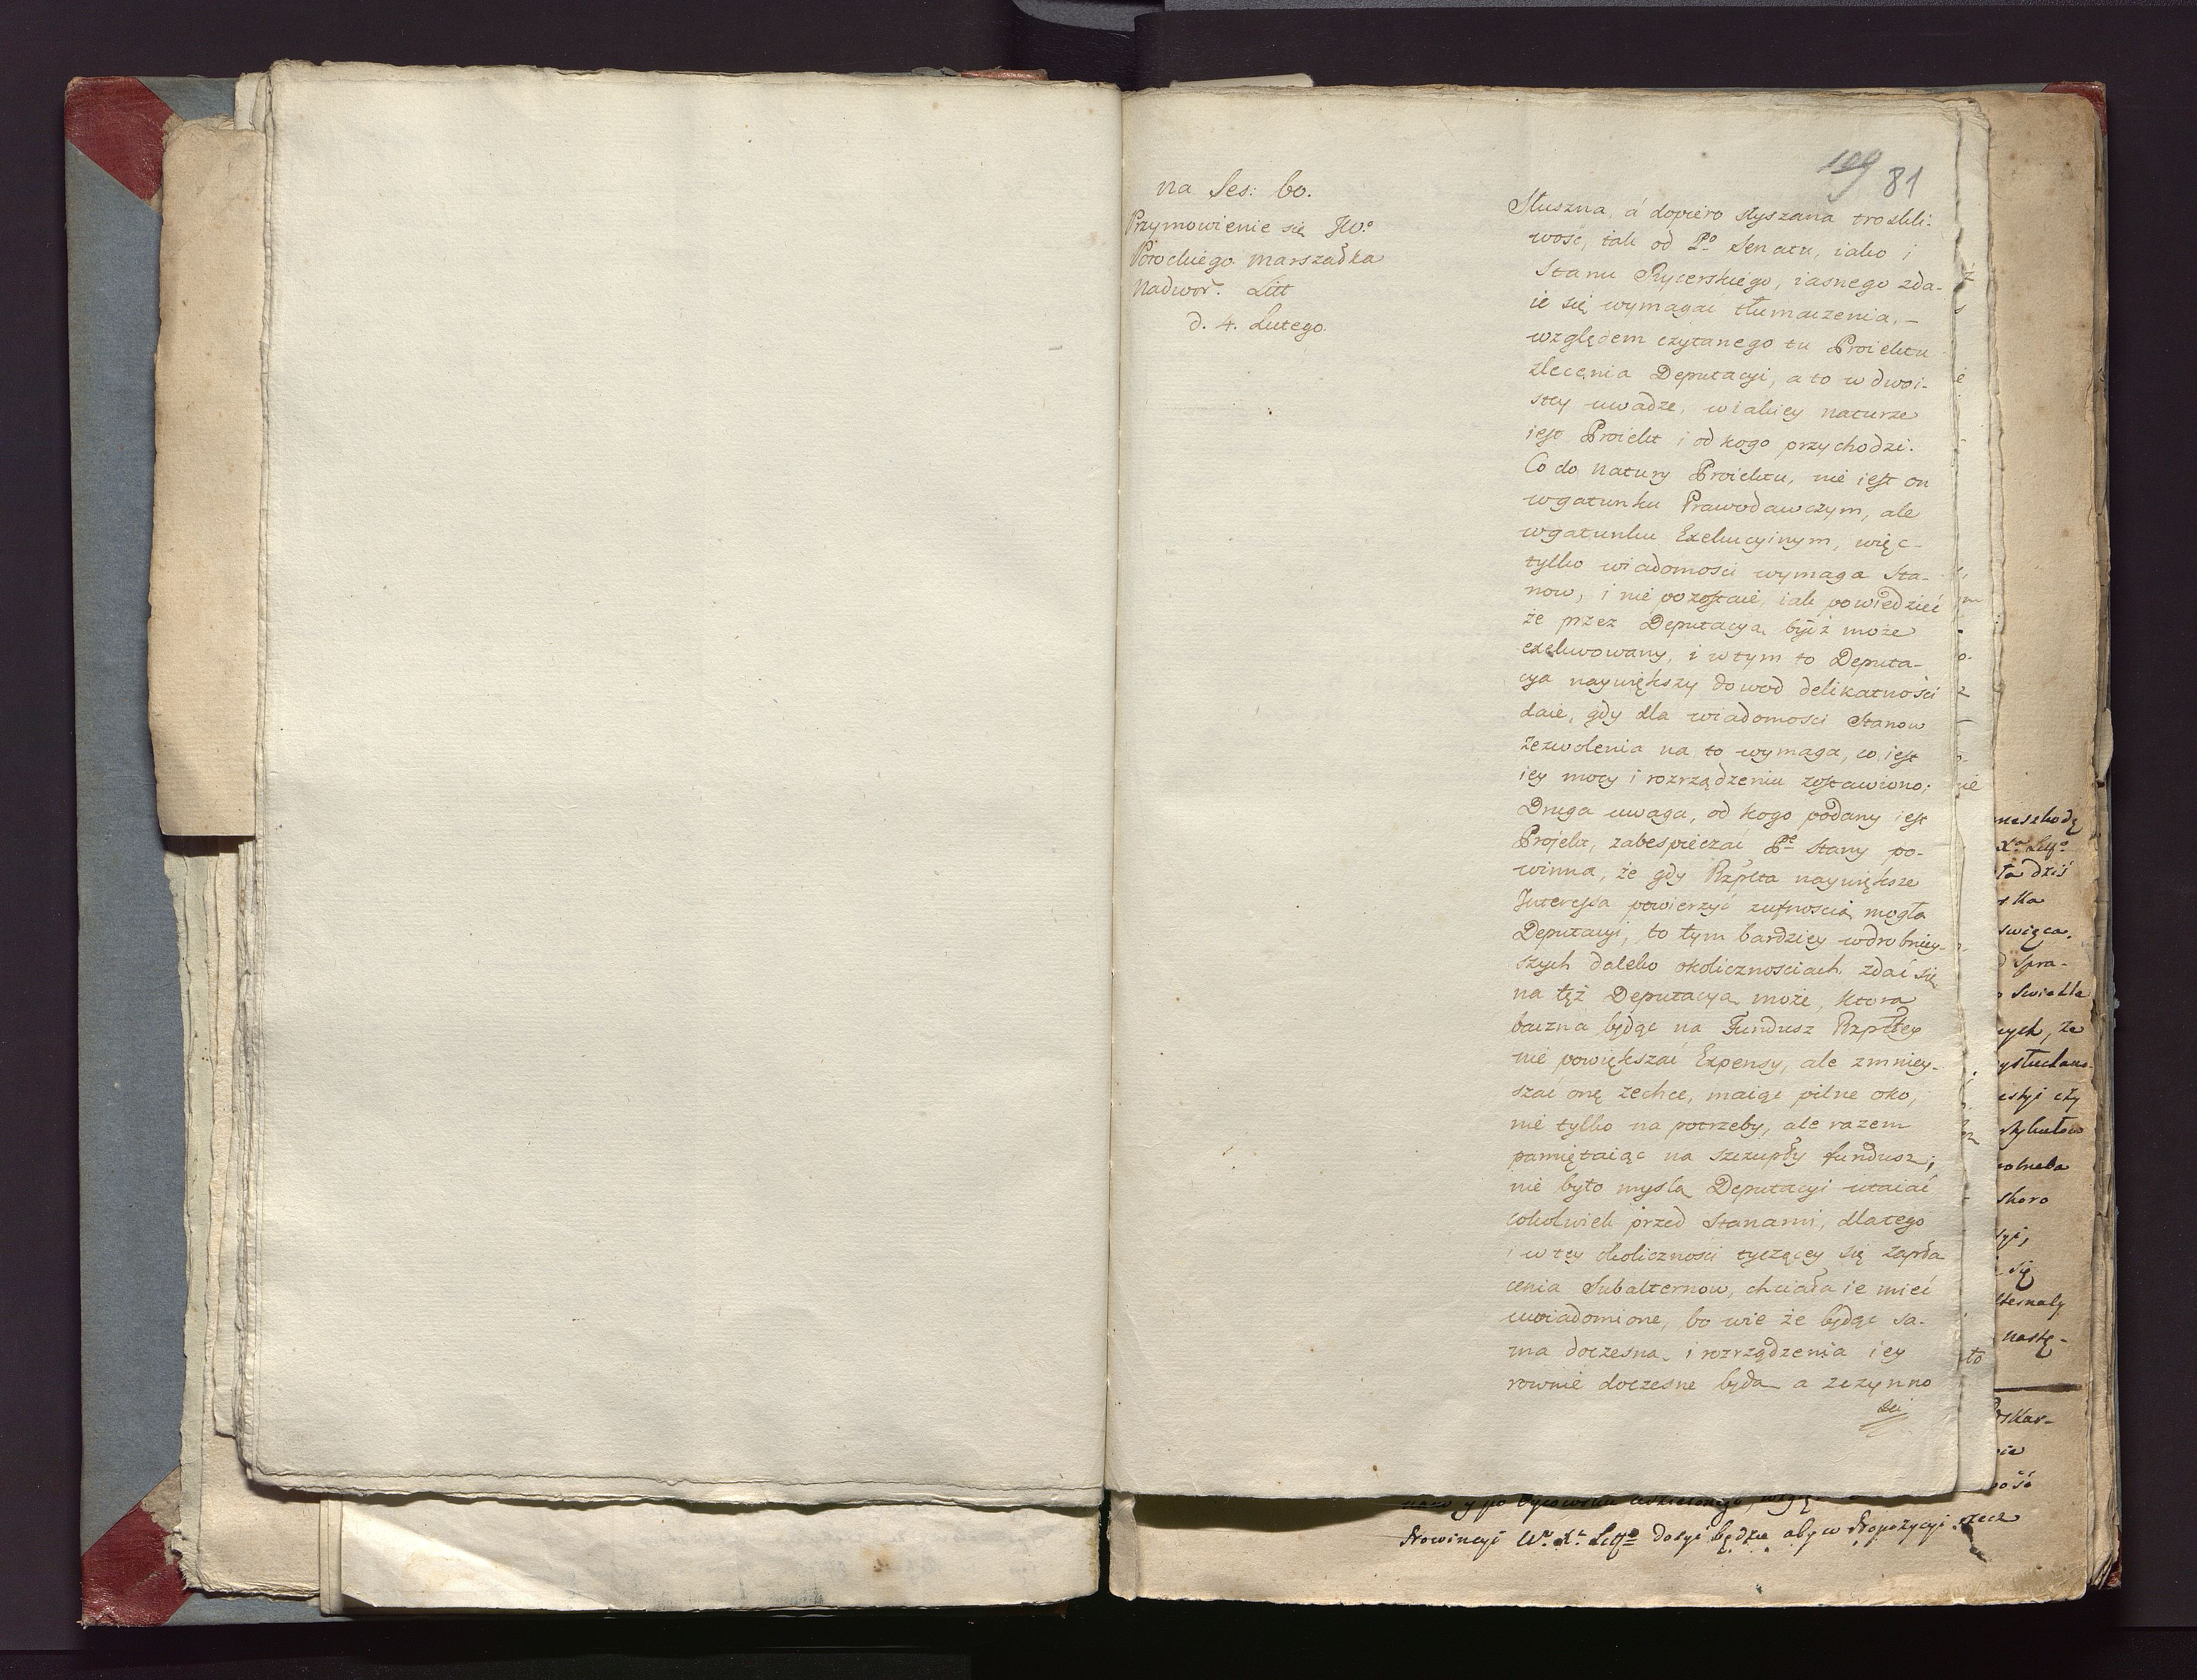 109 81
na Ses: 60.
Przymowienie się JW.o
Potockiego marszałka
Nadwor. Litt
d. 4. Lutego.
Słuszna, á dopiero słyszana troskli-
wość, tak od P.o Senatu, iako i
Stanu Rycerskiego, iasnego zda-
ie się wymagać tłumaczenia, –
względem czytanego tu Proiektu
zlecenia Deputacyi, a to w dwoi-
stey uwadze, w iakiey naturze
iest Proiekt i od kogo przychodzi.
Co do natury Proiektu, nie iest on
w gatunku Prawodawczym, ale
w gatunku Exekucyinym, więc
tylko wiadomosci wymaga Sta-
now, i nie pozostaie, iak powiedzieć
że przez Deputacyą być może
exekwowany, i w tym to Deputa-
cya naywiększy dowod delikatności
daie, gdy dla wiadomosci Stanow
zezwolenia na to wymaga, co iest
iey mocy i rozrządzeniu zostawiono;
Druga uwaga, od kogo podany iest
Projekt, zabespieczać P.e Stany po-
winna, że gdy Rzplta naywiększe
Interessa powierzyć zufnoscią mogła
Deputacyi, to tym bardziey w drobniey-
szych daleko okolicznosciach zdać się
na tęż Deputacyą może, ktora
baczna będąc na Fundusz Rzpltey
nie powiększać Expensy, ale zmniey-
szać onę zechce, maiąc pilne oko,
nie tylko na potrzeby, ale razem
pamiętaiąc na szczupły fundusz;
nie było myslą Deputacyi utaiać
cokolwiek przed Stanami, dlatego
i w tey okoliczności tyczącey się zapła
cenia Subalternow, chciała ie mieć
uwiadomione, bo wie że będąc sa-
ma doczesną, i rozrządzenia iey
rownie doczesne będą a zczynno
sci
Prowincyi W. X. Litt.o dosyć będzie aby w Propozycyi rzecz